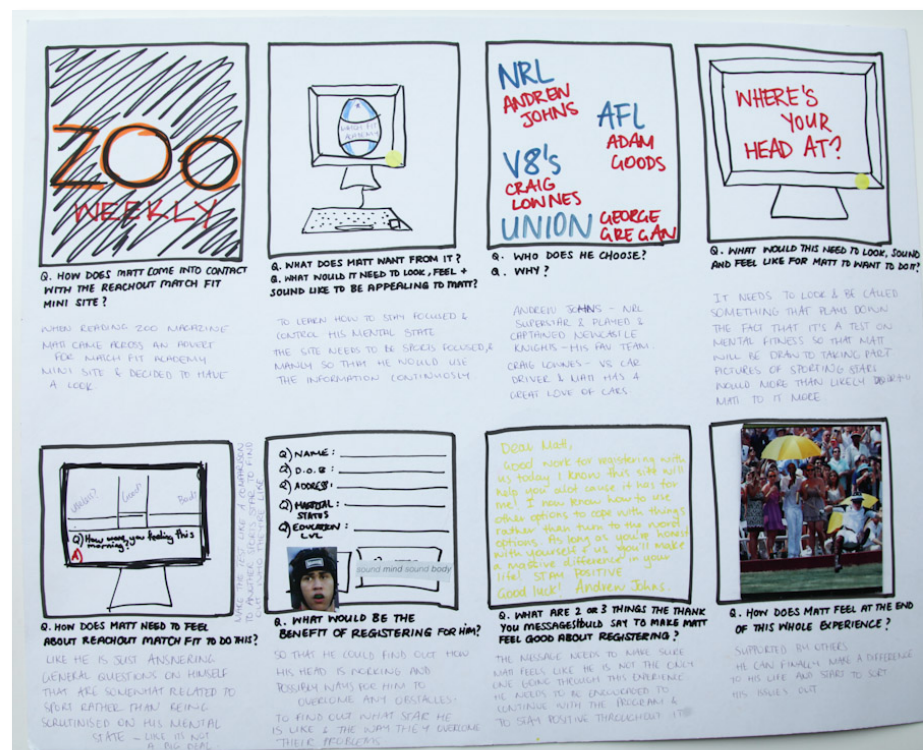 ZOO
WEEKLY
Q. HOW DOES MATT COME INTO CONTACT
WITH THE REACHOUT MATCH FIT
MINI SITE?
WHEN READING ZOO MAGAZINE
MATT CAME ACROSS AN ADVERT
FOR MATCH FIT ACADEMY
MINI SITE & DECIDED TO HAVE
A LOOK
MATCH FIT
ACADEMY
Q. WHAT DOES MATT WANT FROM IT?
Q. WHAT WOULD IT NEED TO LOOK, FEEL +
SOUND LIKE TO BE APPEALING TO MATT?
TO LEARN HOW TO STAY FOCUSED &
CONTROL HIS MENTAL STATE
THE SITE NEEDS TO BE SPORTS FOCUSED, &
MANLY SO THAT HE WOULD USE
THE INFORMATION CONTINUOSLY.
NRL
ANDREW
JOHNS
AFL
ADAM
GOODS
V8's
CRAIG
LOWNES
UNION
GEORGE
GREGAN
Q. WHO DOES HE CHOOSE?
Q. WHY?
ANDREW JOHNS - NRL
SUPERSTAR & PLAYED &
CAPTAINED NEWCASTLE
KNIGHTS - HIS FAV TEAM.
CRAIG LOWNES - V8 CAR
DRIVER & MATT HAS A
GREAT LOVE OF CARS
WHERE'S
YOUR
HEAD AT?
Q. WHAT WOULD THIS NEED TO LOOK, SOUND
AND FEEL LIKE FOR MATT TO WANT TO DO IT?
IT NEEDS TO LOOK & BE CALLED
SOMETHING THAT PLAYS DOWN
THE FACT THAT IT'S A TEST ON
MENTAL FITNESS SO THAT MATT
WILL BE DRAWN TO TAKING PART
PICTURES OF SPORTING STARS
WOULD MORE THAN LIKELY
MATT TO IT MORE
Q) How were you feeling this
morning?
A)
MAKE THE LIKE A COMPARISON
TO ANOTHER SPORTS STAR TO FIND
OUT WHO THEY'RE LIKE
Q. HOW DOES MATT NEED TO FEEL
ABOUT REACHOUT MATCH FIT TO DO THIS?
LIKE HE IS JUST ANSWERING
GENERAL QUESTIONS ON HIMSELF
THAT ARE SOMEWHAT RELATED TO
SPORT RATHER THAN BEING
SCRUTINISED ON HIS MENTAL
STATE - LIKE ITS NOT
A BIG DEAL
Q) NAME:
Q) D.O.B:
Q) ADDRESS:
Q) MARITAL
STATUS
Q) EDUCATION
LVL
sound mind sound body
Q. WHAT WOULD BE THE
BENEFIT OF REGISTERING FOR HIM?
SO THAT HE COULD FIND OUT HOW
HIS HEAD IS WORKING AND
POSSIBLY WAYS FOR HIM TO
OVERCOME ANY OBSTACLES.
TO FIND OUT WHAT STAR HE
IS LIKE & THE WAY THEY OVERCOME
THEIR PROBLEMS
Dear Matt,
Good work for registering with
us today I know this site will
help you alot cause it has for
me! I now know how to use
other options to cope with things
rather than turn to the worst
options. As long as you're honest
with yourself & us you'll make
a massive difference in your
life! STAY POSITIVE
Good luck! Andrew Johns.
Q. WHAT ARE 2 or 3 THINGS THE THANK
YOU MESSAGE SHOULD SAY TO MAKE MATT
FEEL GOOD ABOUT REGISTERING?
THE MESSAGE NEEDS TO MAKE SURE
MATT FEELS LIKE HE IS NOT THE ONLY
ONE GOING THROUGH THIS EXPERIENCE
HE NEEDS TO BE ENCOURAGED TO
CONTINUE WITH THE PROGRAM &
TO STAY POSITIVE THROUGHOUT IT
Q. HOW DOES MATT FEEL AT THE END
OF THIS WHOLE EXPERIENCE?
SUPPORTED BY OTHERS
HE CAN FINALLY MAKE A DIFFERENCE
TO HIS LIFE AND START TO SORT
HIS ISSUES OUT